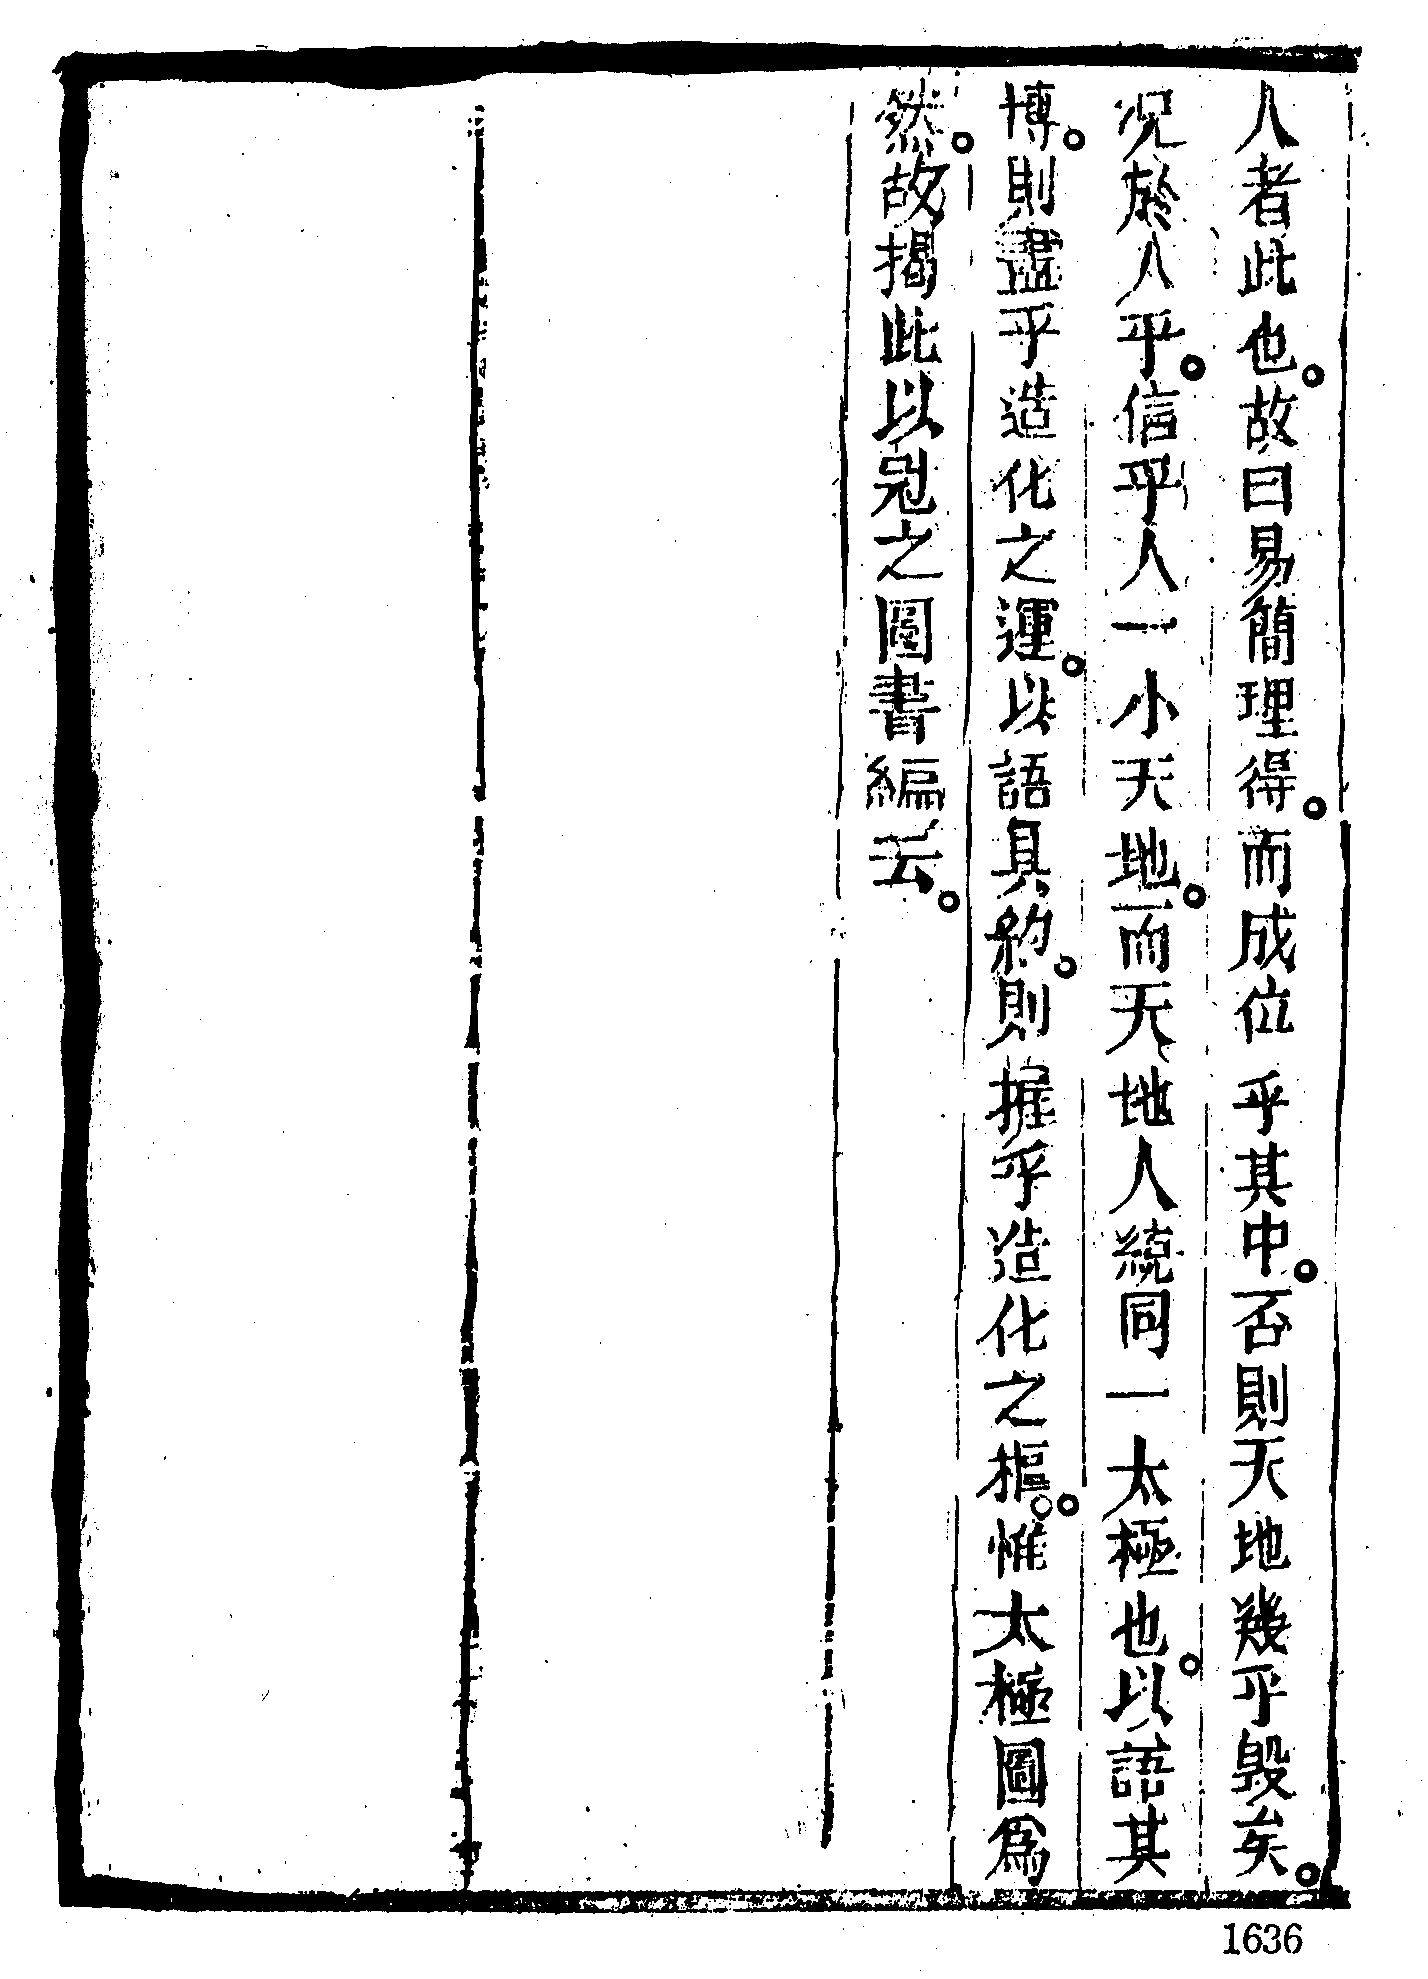 人者此也。故曰易簡理得。而成位乎其中。否則天地幾乎毀矣。
况於人乎。信乎人一小天地。而天地人統同一太極也。以語其
博。則盡乎造化之運。以語其約。則握乎造化之樞。惟太極圖爲
然。故揭此以冠之圖書編云。
1636